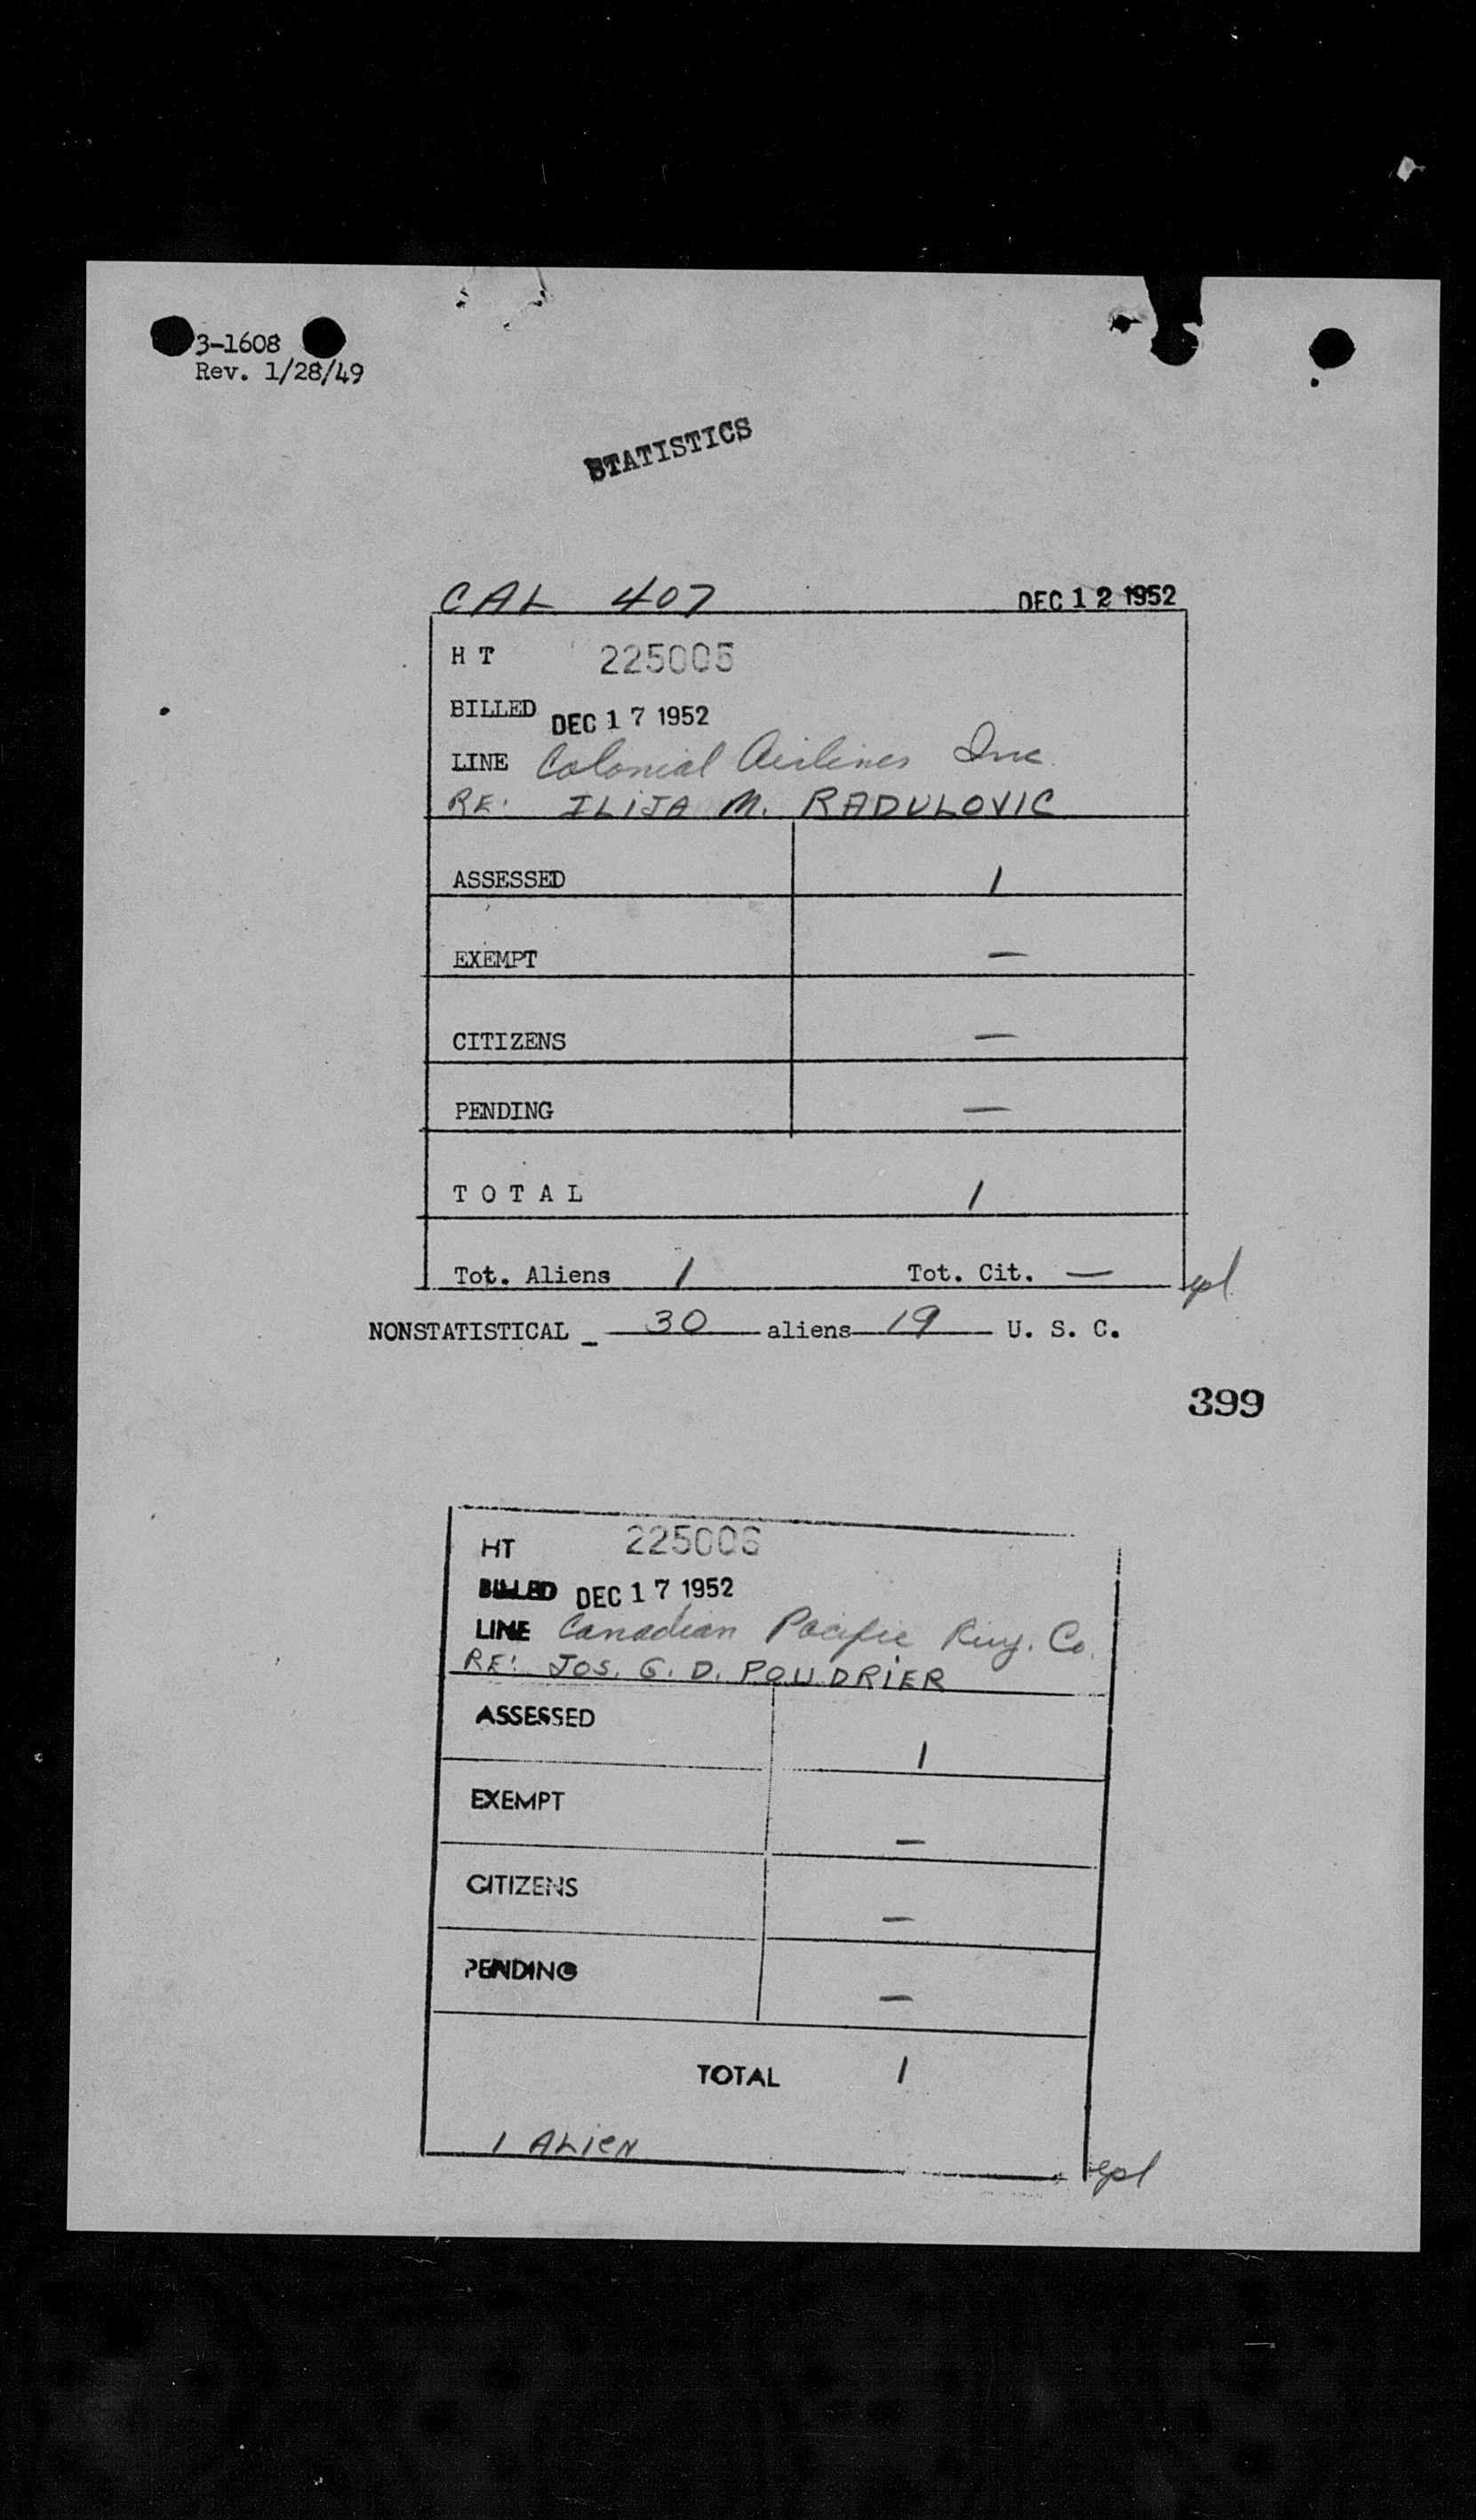 3-1608
Rev. 1/28/49
STATISTICS
CAL 407 DEC 12 1952
H T 225005
BILLED DEC 17 1952
LINE Colonial Airlines Inc.
RE: ILIJA M. RADULOVIC
ASSESSED 1
EXEMPT —
CITIZENS —
PENDING —
T O T A L 1
Tot. Aliens 1 Tot. Cit. —
epl
NONSTATISTICAL - 30 aliens 19 U. S. C.
399
HT 225006
BILLED DEC 17 1952
LINE Canadian Pacific Rwy. Co.
RE: JOS. G. D. POUDRIER
ASSESSED 1
EXEMPT —
CITIZENS —
PENDING —
TOTAL 1
1 ALIEN
epl